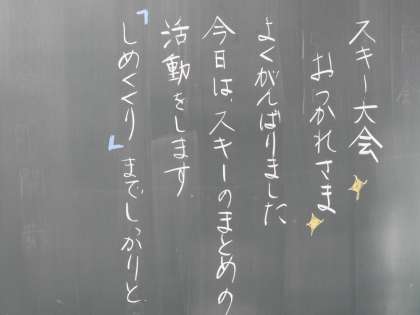 スキー大会
おつかれさま
よくがんばりました
今日は、スキーのまとめの
活動をします
「しめくくり」までしっかりと